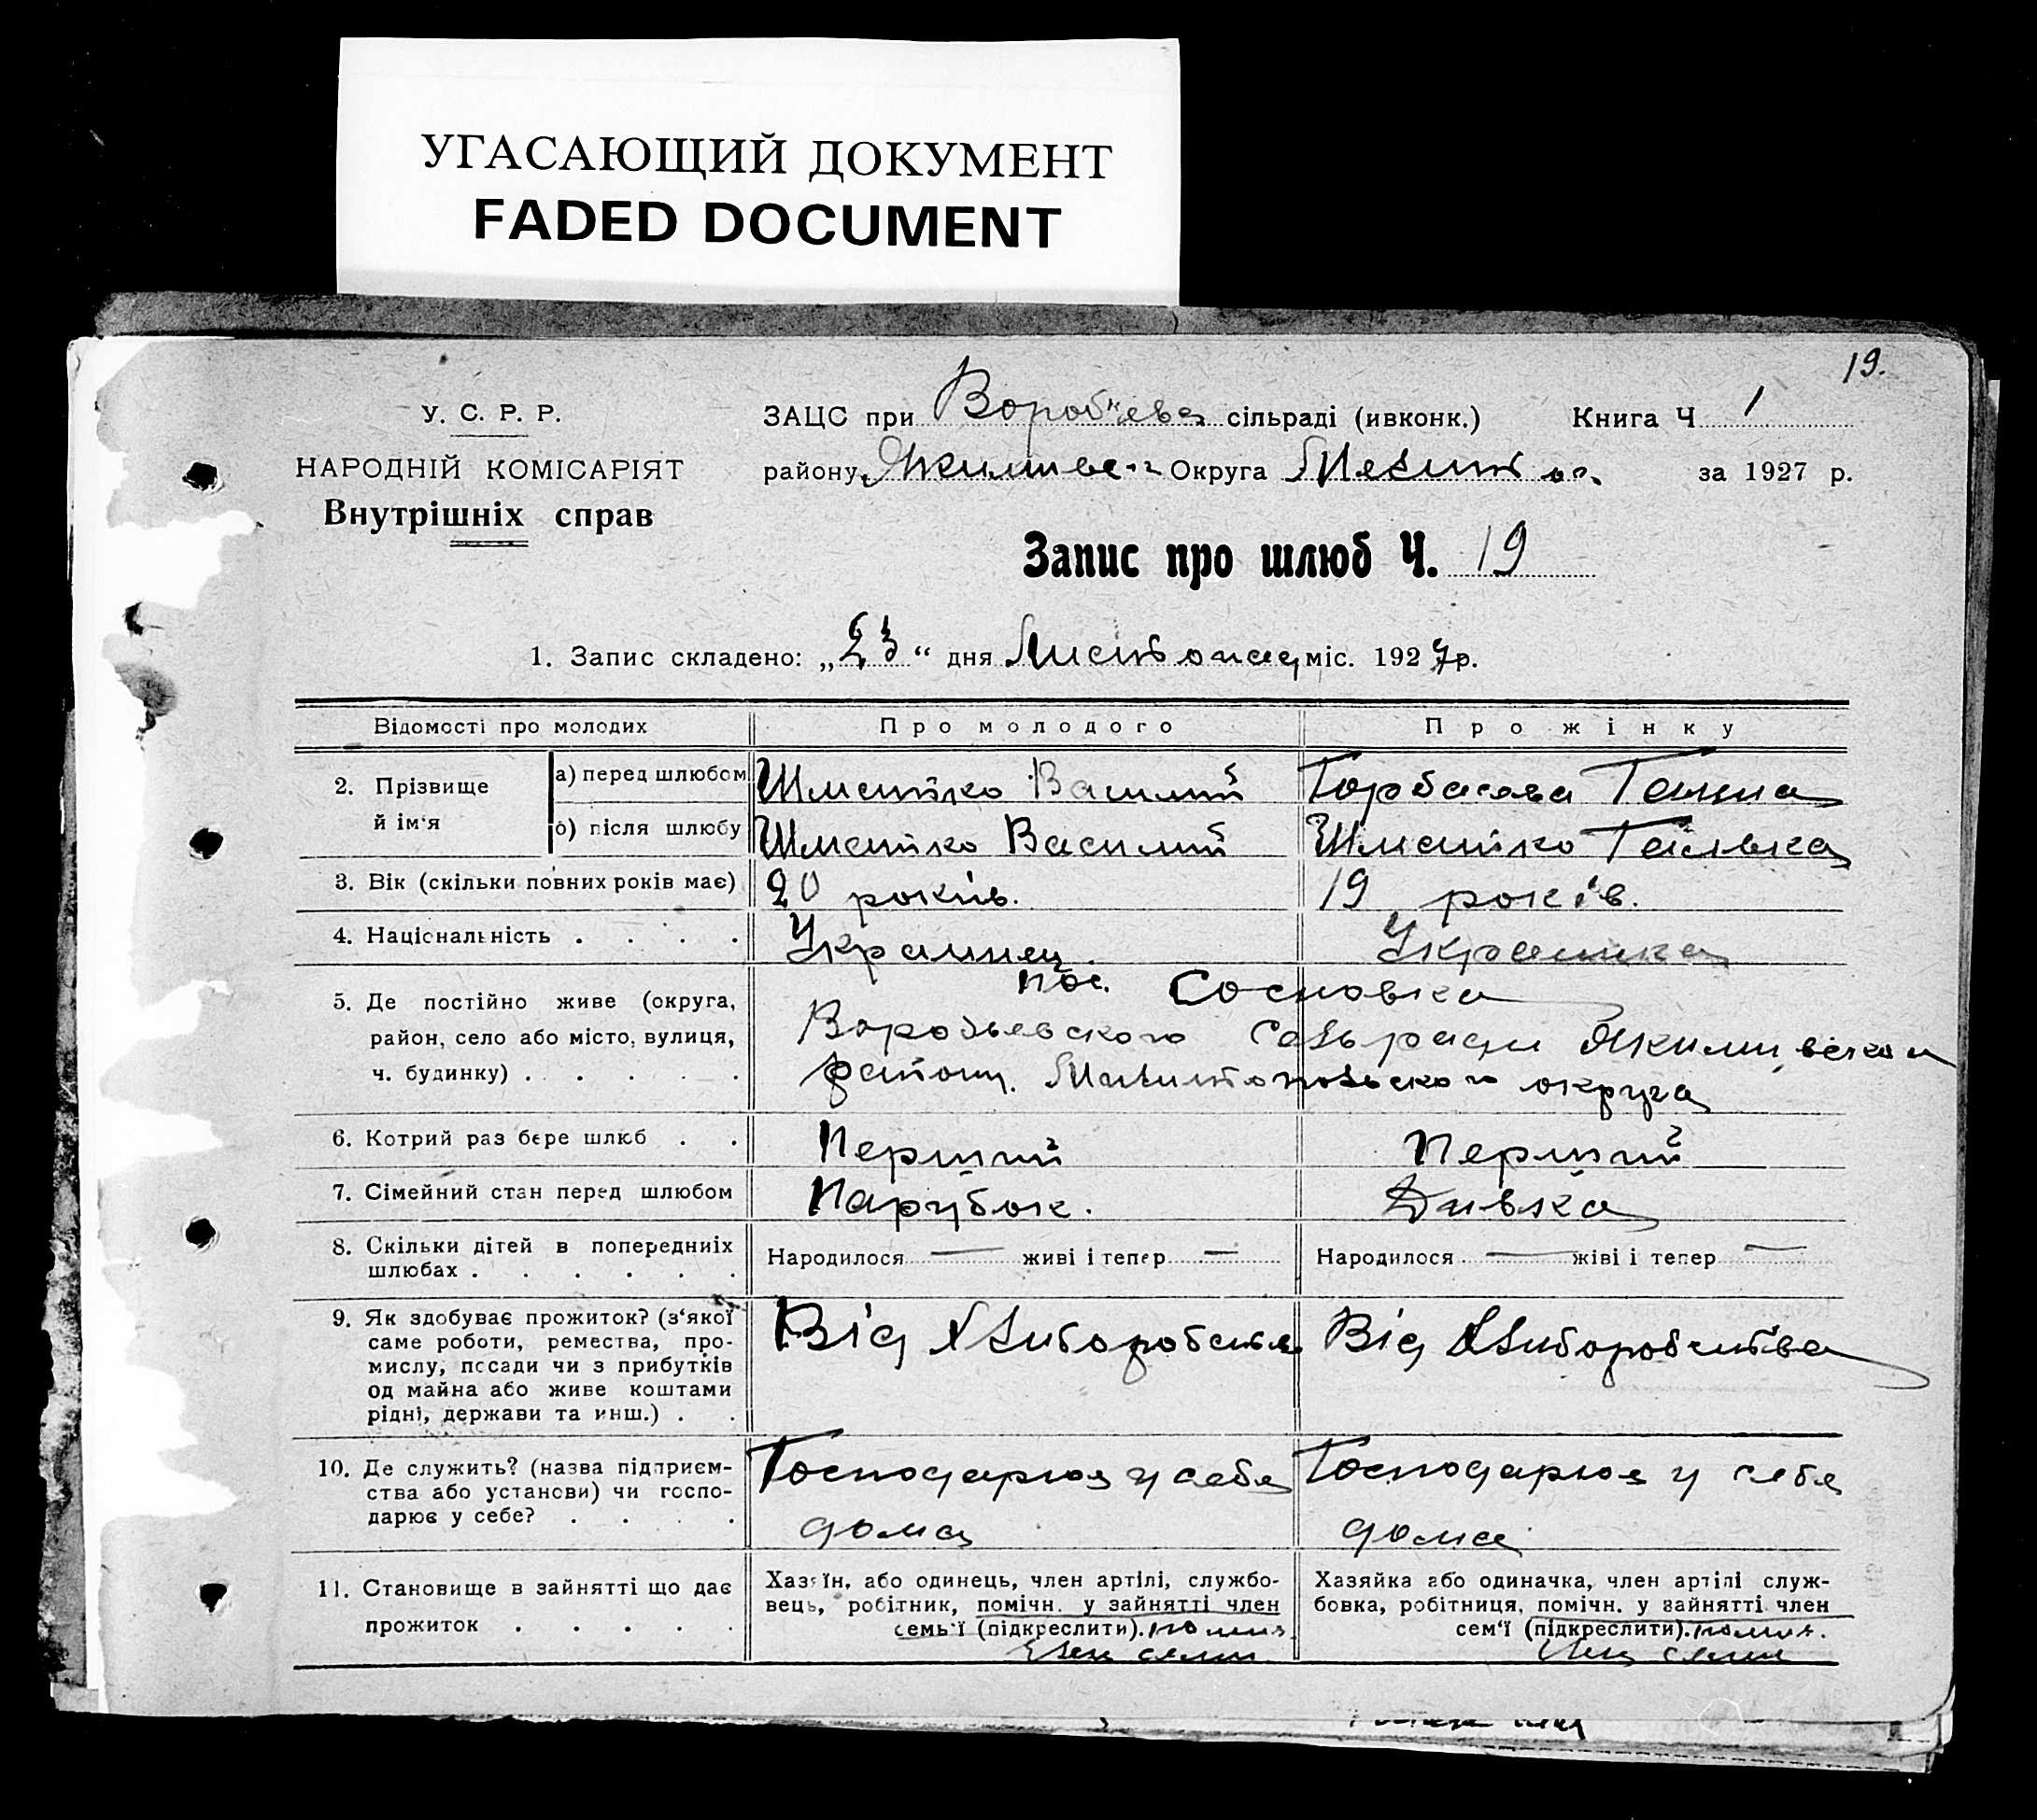 УГАСАЮЩИЙ ДОКУМЕНТ
FADED DOCUMENT
19.
У. С. Р. Р.
НАРОДНІЙ КОМІСАРІЯТ
Внутрішніх справ
ЗАЦС при сільраді (ивконк.) Книга Ч 1
району Округа за 1927 р.
Запис про шлюб Ч. 19
1. Запис складено: „23“ дня Листопад міс. 1927 р.
Відомості про молодих Про молодого Про жінку
2. Прізвище й ім'я
а) перед шлюбом Шматко Василий Горбасова
б) після шлюбу Шматко Василий Шматко
3. Вік (скільки повних років має) 20 років. 19 років.
4. Національність . . . . Украинец. Украинка
5. Де постійно живе (округа, район, село або місто, вулиця, ч. будинку) . . . . .
пос. Сосновка
Воробьевского
району. Мелитопольского округа
6. Котрий раз бере шлюб . . Перший Перший
7. Сімейний стан перед шлюбом Парубок. Дивка
8. Скільки дітей в попередниіх шлюбах . . . . . .
Народилося — живі і тепер — Народилося — жіві і тепер —
9. Як здобуває прожиток? (з'якої
саме роботи, ремества, про-
мислу, посади чи з прибутків
од майна або живе коштами
рідні, держави та инш.) . .
Від Хлиборобства Від Хлиборобства
10. Де служить? (назва підприєм-
ства або установи) чи госпо-
дарює у себе? . . . .
Господарюя у себя Господарюя у себя
дома дома
11. Становище в зайнятті що дає
прожиток . . . . .
Хазяїн, або одинець, член артілі, службо-
вець, робітник, помічн. у зайнятті член
семь'ї (підкреслити). помич.
член семи
Хазяйка або одиначка, член артілі служ-
бовка, робітниця, помічн. у зайнятті член
сем'ї (підкреслити). помич.
член семи